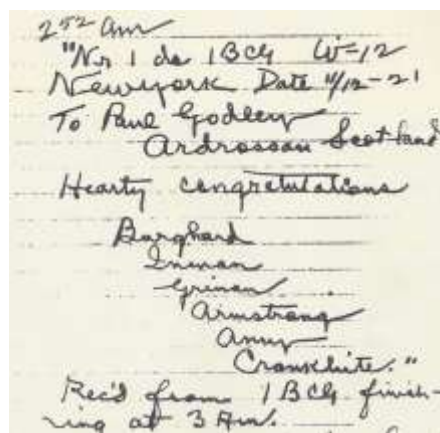 2 52 am
"Nr 1 de 1BCG W-12
Newyork Date 11/12-21
To Paul Godley
Ardrossan Scotland
Hearty congratulations
Burghard
Inman
Grinan
Armstrong
Amy
Cronkhite."
Rec'd from 1BCG finish-
ing at 3 Am.